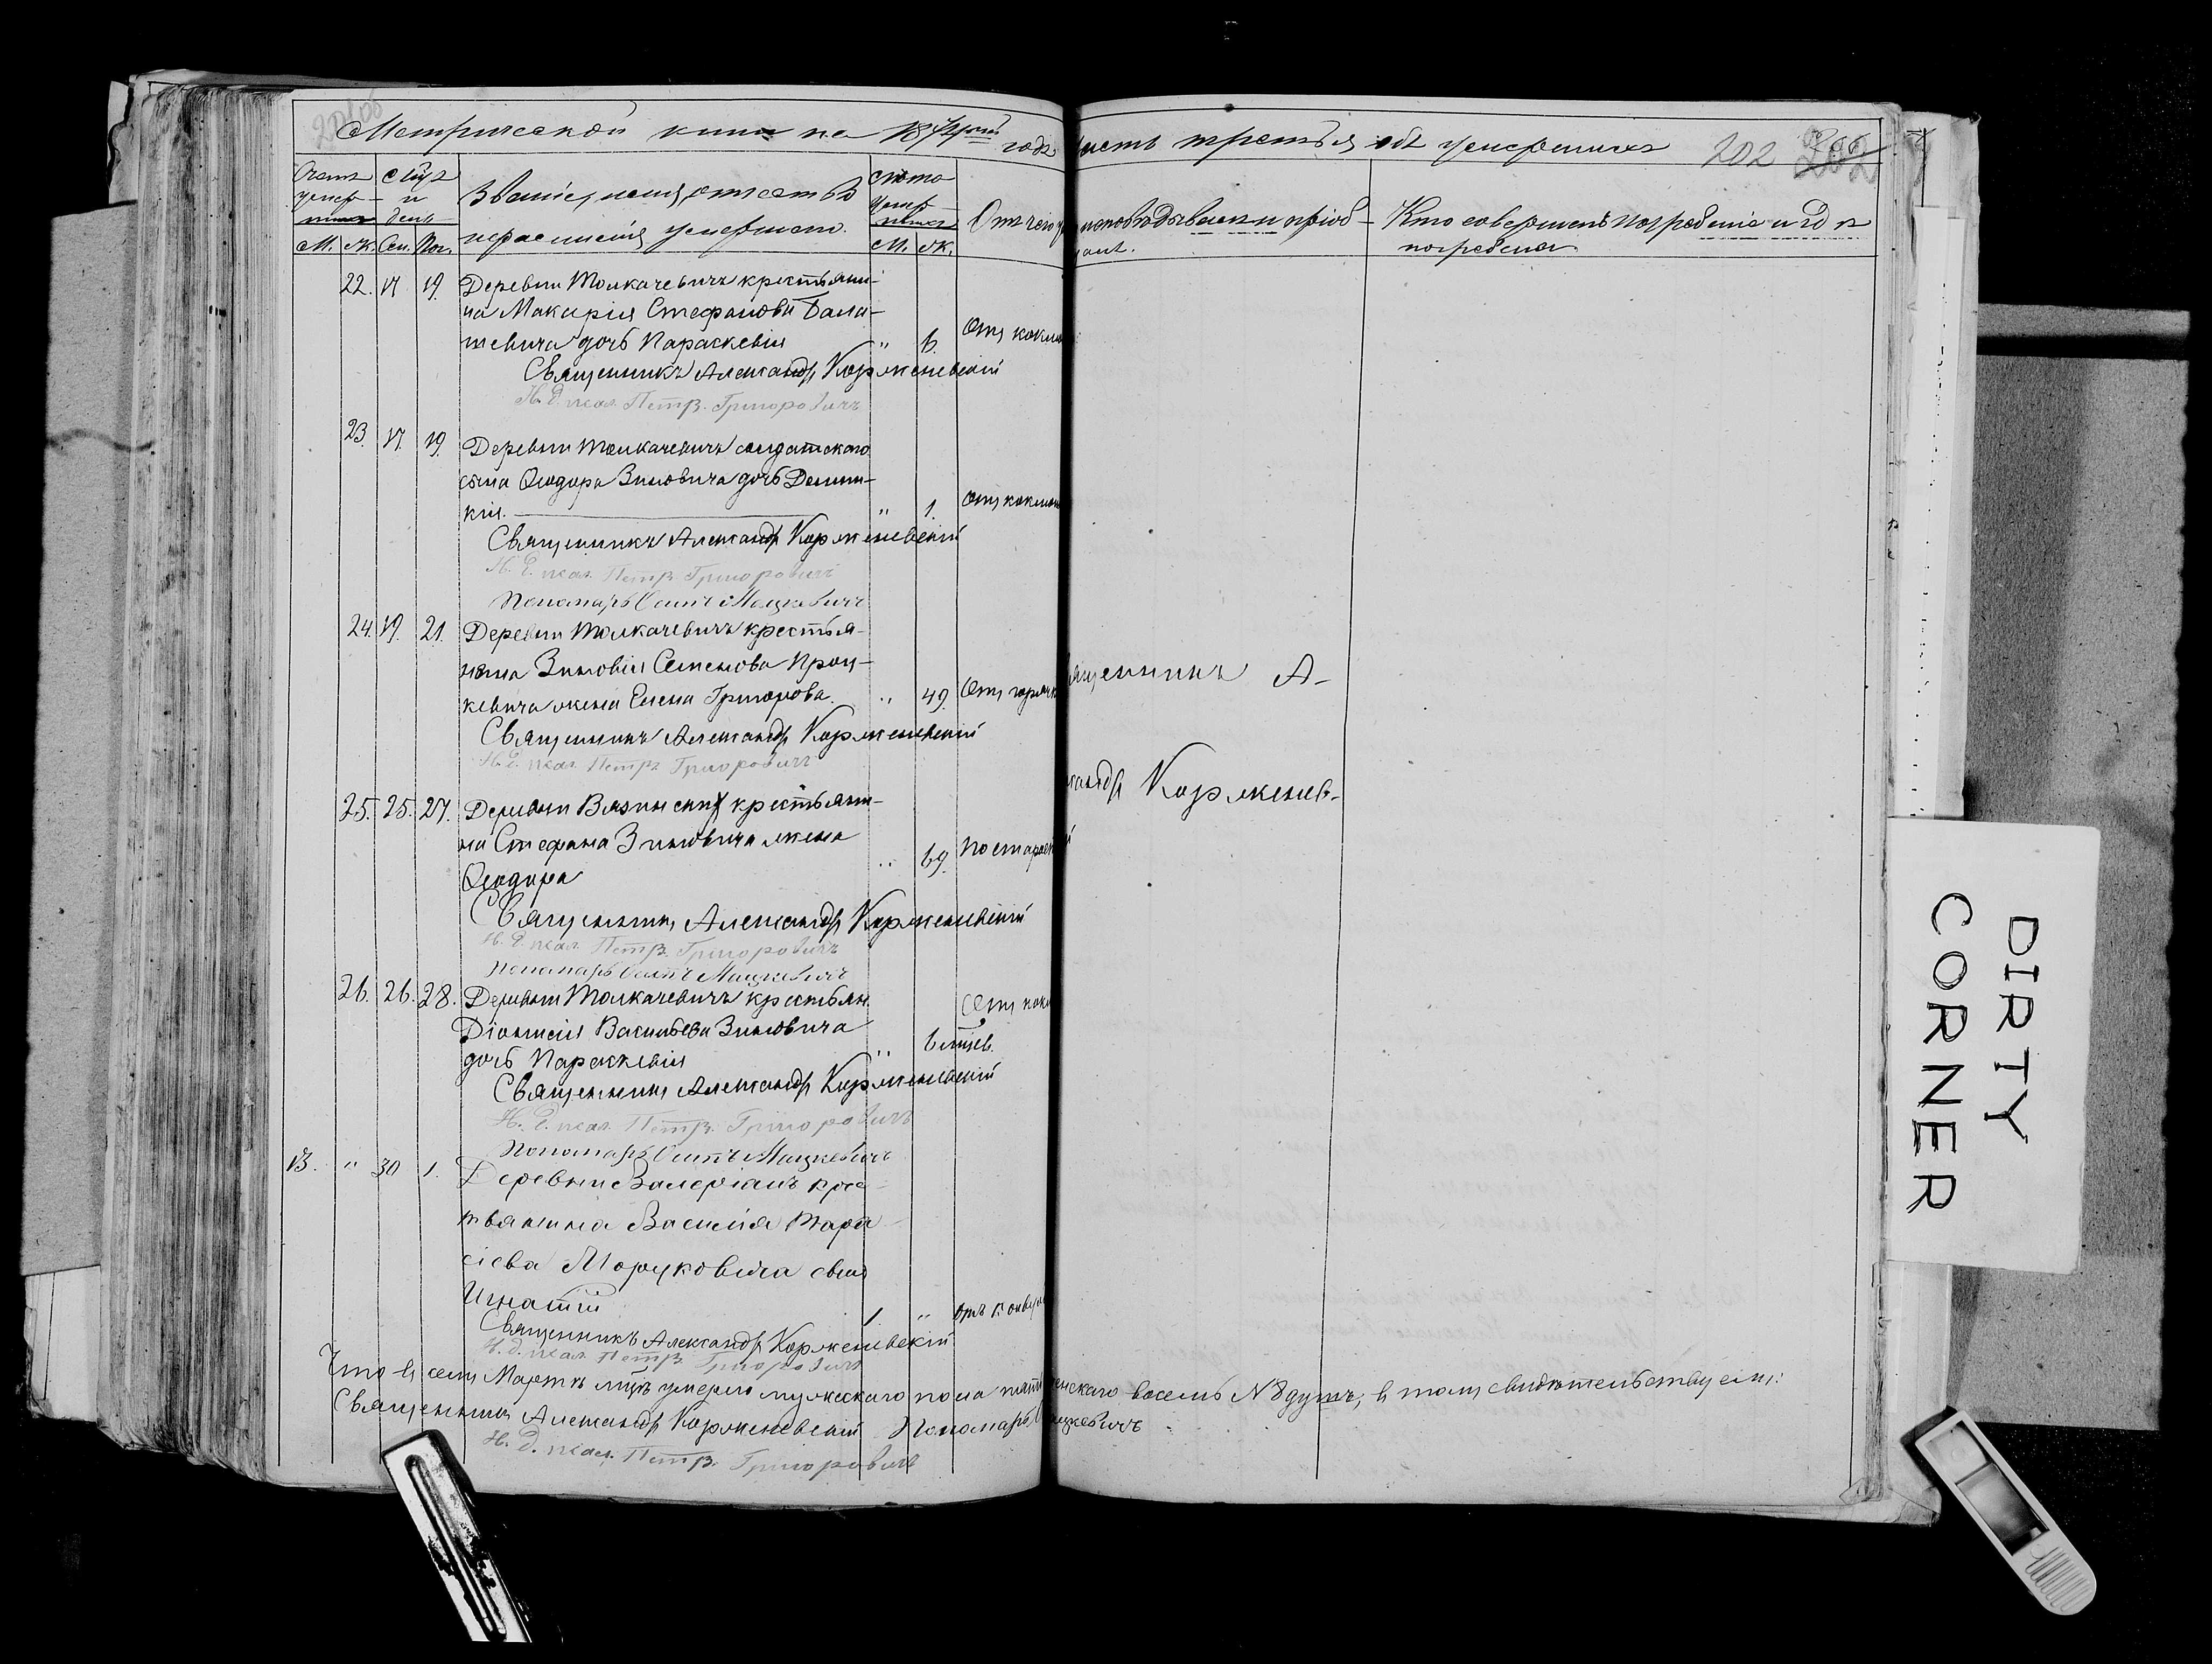 Метрической книги на 1872й годъ
часть третья объ умершихъ 202
Счетъ умер-
шихъ
М. Ж.
Мѣся
и
день
См. Пог.
Званіе, имя, отчество
и фамилія умершаго.
Лѣта
умер-
шихъ
М. Ж.
Отъ чего
исповѣдывалъ и пріоб-
щалъ.
Кто совершалъ погребеніе и гдѣ
погребены
22. 17 19. Деревни Толкачевичъ крестьяни-
на Макарія Стефанова Бала-
шевича дочь Параскевія " 6. Отъ коклю
Священникъ Александръ Корженевскій
И. д. псал. Петръ Григоровичъ
23. 17. 19. Деревни Толкачевичъ солдатскаго
сына Ѳеодора Зиновича дочь Домни-
кія. " 1. Отъ коклюш
Священникъ Александръ Корженевскій
И. д. псал. Петръ Григоровичъ
Пономарь Осипъ Мацкевичъ
24. 19. 21. Деревни Толкачевичъ крестья-
нина Зиновія Семенова Проц-
кевича жена Елена Григорова. " 49. Отъ горячк
Священникъ Александръ Корженевскій
И. д. псал. Петръ Григоровичъ
25. 25. 27. Деревни крестьяни-
на Стефана Зиновича жена
Ѳеодора " 69. По старости
Священникъ Александръ Корженевскій
И. д. псал. Петръ Григоровичъ
Пономарь Осипъ Мацкевичъ
26. 26. 28. Деревни Толкачевичъ крестьян.
Діонисія Васильева Зиновича
дочь Параскевія " 6 мѣсев. Отъ кокл
Священникъ Александръ Корженевскій
И. д. псал. Петръ Григоровичъ
Пономарь Осипъ Мацкевичъ
13. " 30 1. Деревни Валеріанъ крес-
тьянина Василія Тара
сіева Моруковича сынъ
Игнатій 1. " Отъ конвул
Священникъ Александръ Корженевскій
И. д. псал. Петръ Григоровичъ
ященникъ А-
лександръ Корженев-
Что въ семъ Мартѣ мѣсяцѣ умерло мужескаго пола женскаго восемь N8 душъ, въ томъ свидѣтельствуемъ:
Священникъ Александръ Корженевскій Пономарь Мацкевичъ
И. д. псал. Петръ Григоровичъ
DIRTY
CORNER